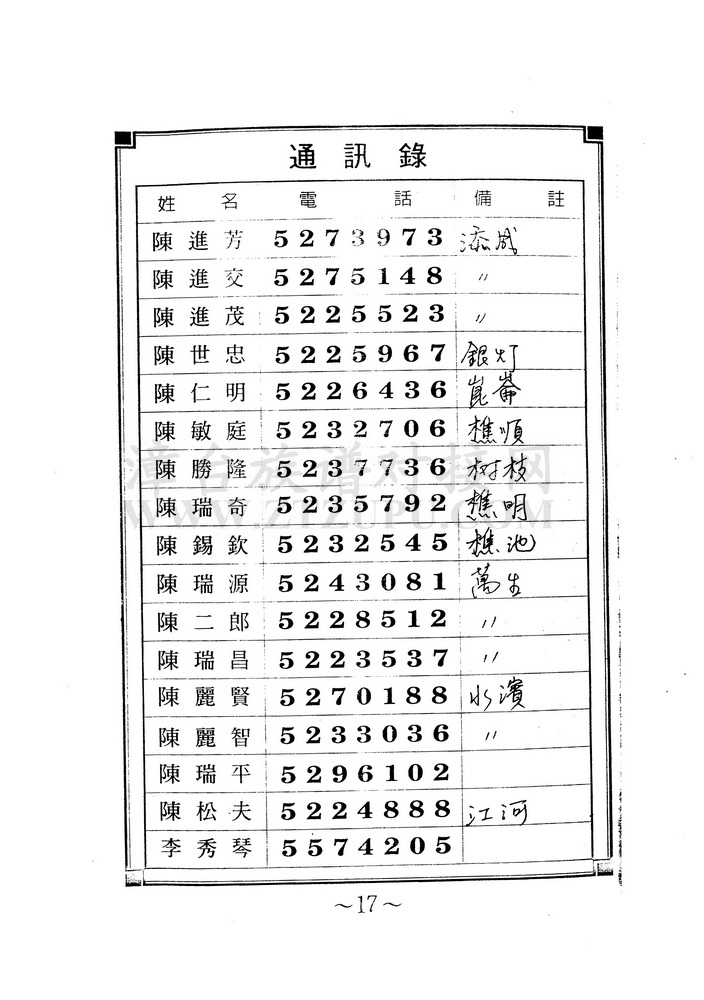 通訊錄
姓名 電話 備註
陳進芳 5273973 添成
陳進交 5275148 〃
陳進茂 5225523 〃
陳世忠 5225967 銀灯
陳仁明 5226436 崑崙
陳敏庭 5232706 樵順
陳勝隆 5237736 树枝
陳瑞奇 5235792 樵明
陳錫欽 5232545 樵池
陳瑞源 5243081 萬生
陳二郎 5228512 〃
陳瑞昌 5223537 〃
陳麗賢 5270188 水濱
陳麗智 5233036 〃
陳瑞平 5296102
陳松夫 5224888 江河
李秀琴 5574205
～17～
漳台族谱对接网
WWW.ZTZUPU.COM